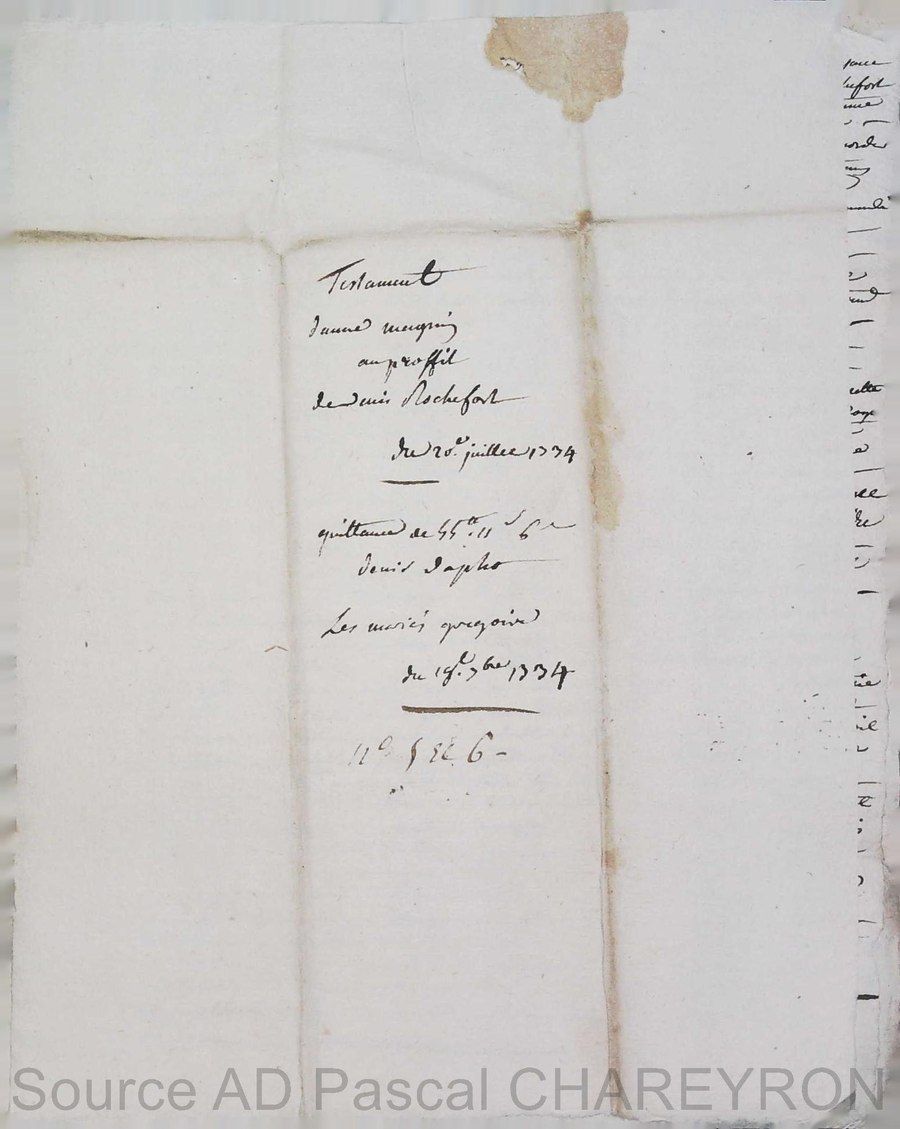 Testament
danne magnin
au proffit
de denis Rochefort
du 20e. juillet 1734
quittance de 55tt. 11s 6d
denis dapho
Les mariés gregoire
du 19e. 7bre 1734
n° 5 et 6 -
Source AD Pascal CHAREYRON